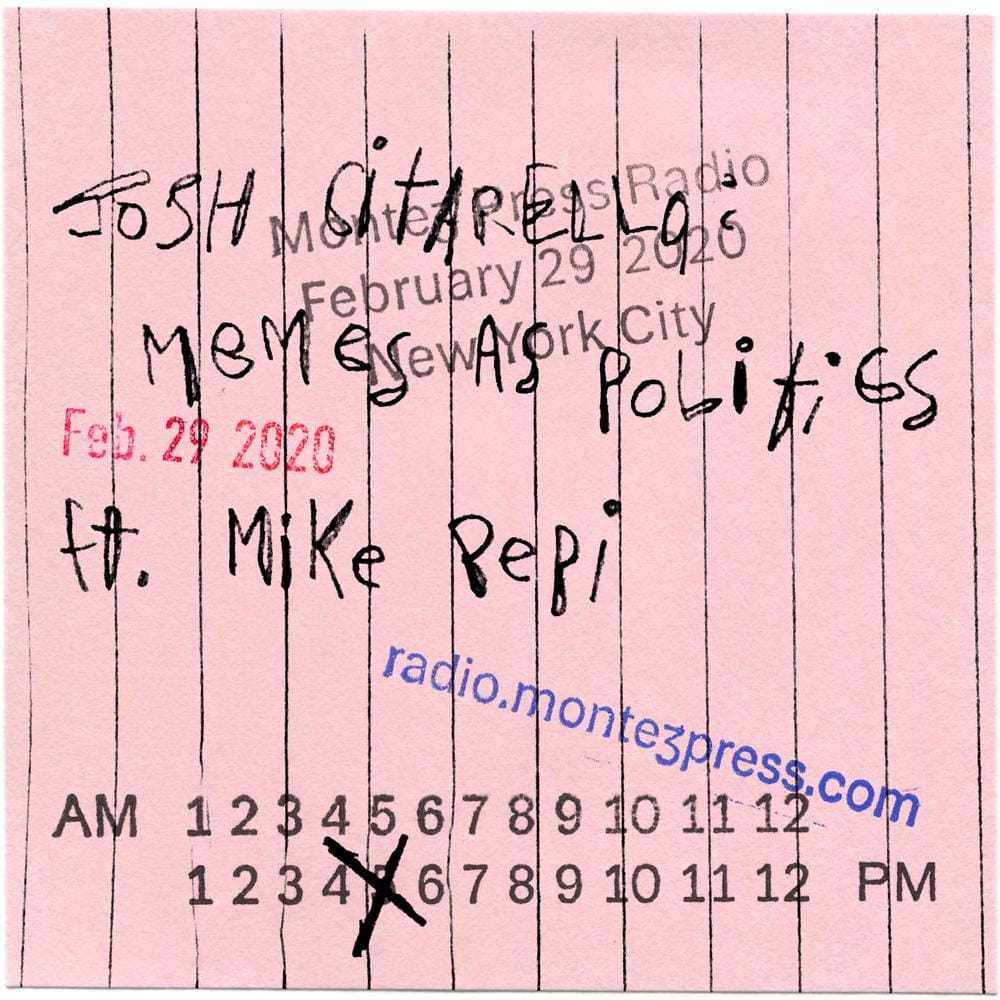 JOSH CitARELLO:
Montez Press Radio
February 29 2020
New York City
MeMes As PoLitics
Feb. 29 2020
ft. MiKe Pepi
radio.montezpress.com
AM 1 2 3 4 5 6 7 8 9 10 11 12
1 2 3 4 5 6 7 8 9 10 11 12 PM